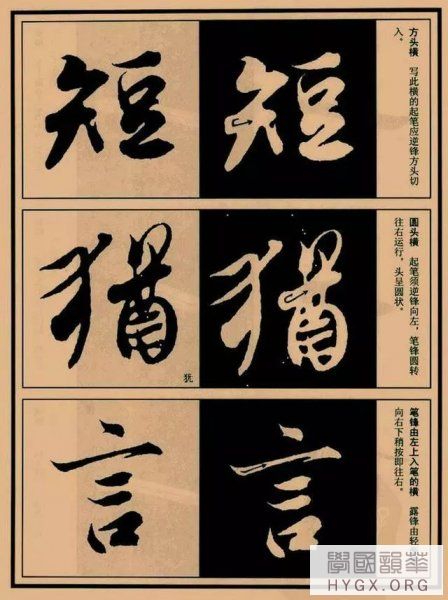 方头横 写此横的起笔应逆锋方头切
入。
短 短
圆头横 起笔须逆锋向左，笔锋圆转
往右运行，头呈圆状。
猶 猶
犹
笔锋由左上入笔的横 露锋由轻
向右下稍按即往右。
言 言
學國韻華
HYGX.ORG